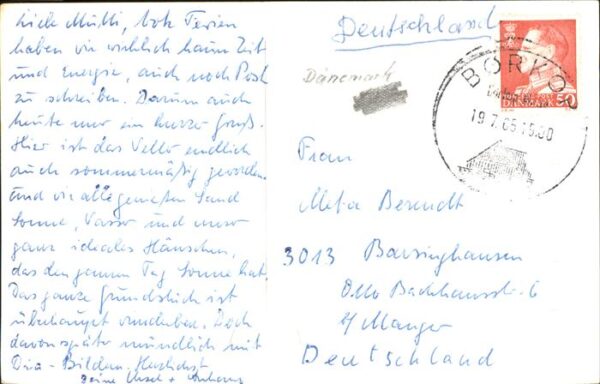 Liebe Mutti, trotz Ferien
haben wir wirklich kaum Zeit
und Energie, auch noch Post
zu schreiben. Darum auch
heute nur ein kurzer Gruß.
Hier ist das endlich
auch sommermäßig geworden
und wir alle genießen Sand
Sonne, Wasser und unser
ganz ideales Häuschen,
das den ganzen Tag Sonne hat.
Das ganze Grundstück ist
überhaupt Doch
davon später mündlich mit
Dia-Bildern. Herzlichst
Deine
Deutschland
Dänemark
BØRKOP
19.7.65 15.00
DANMARK 50
Frau
Meta Berendt
3013 Barsinghausen
Otto Backhausstr. 6
Deutschland